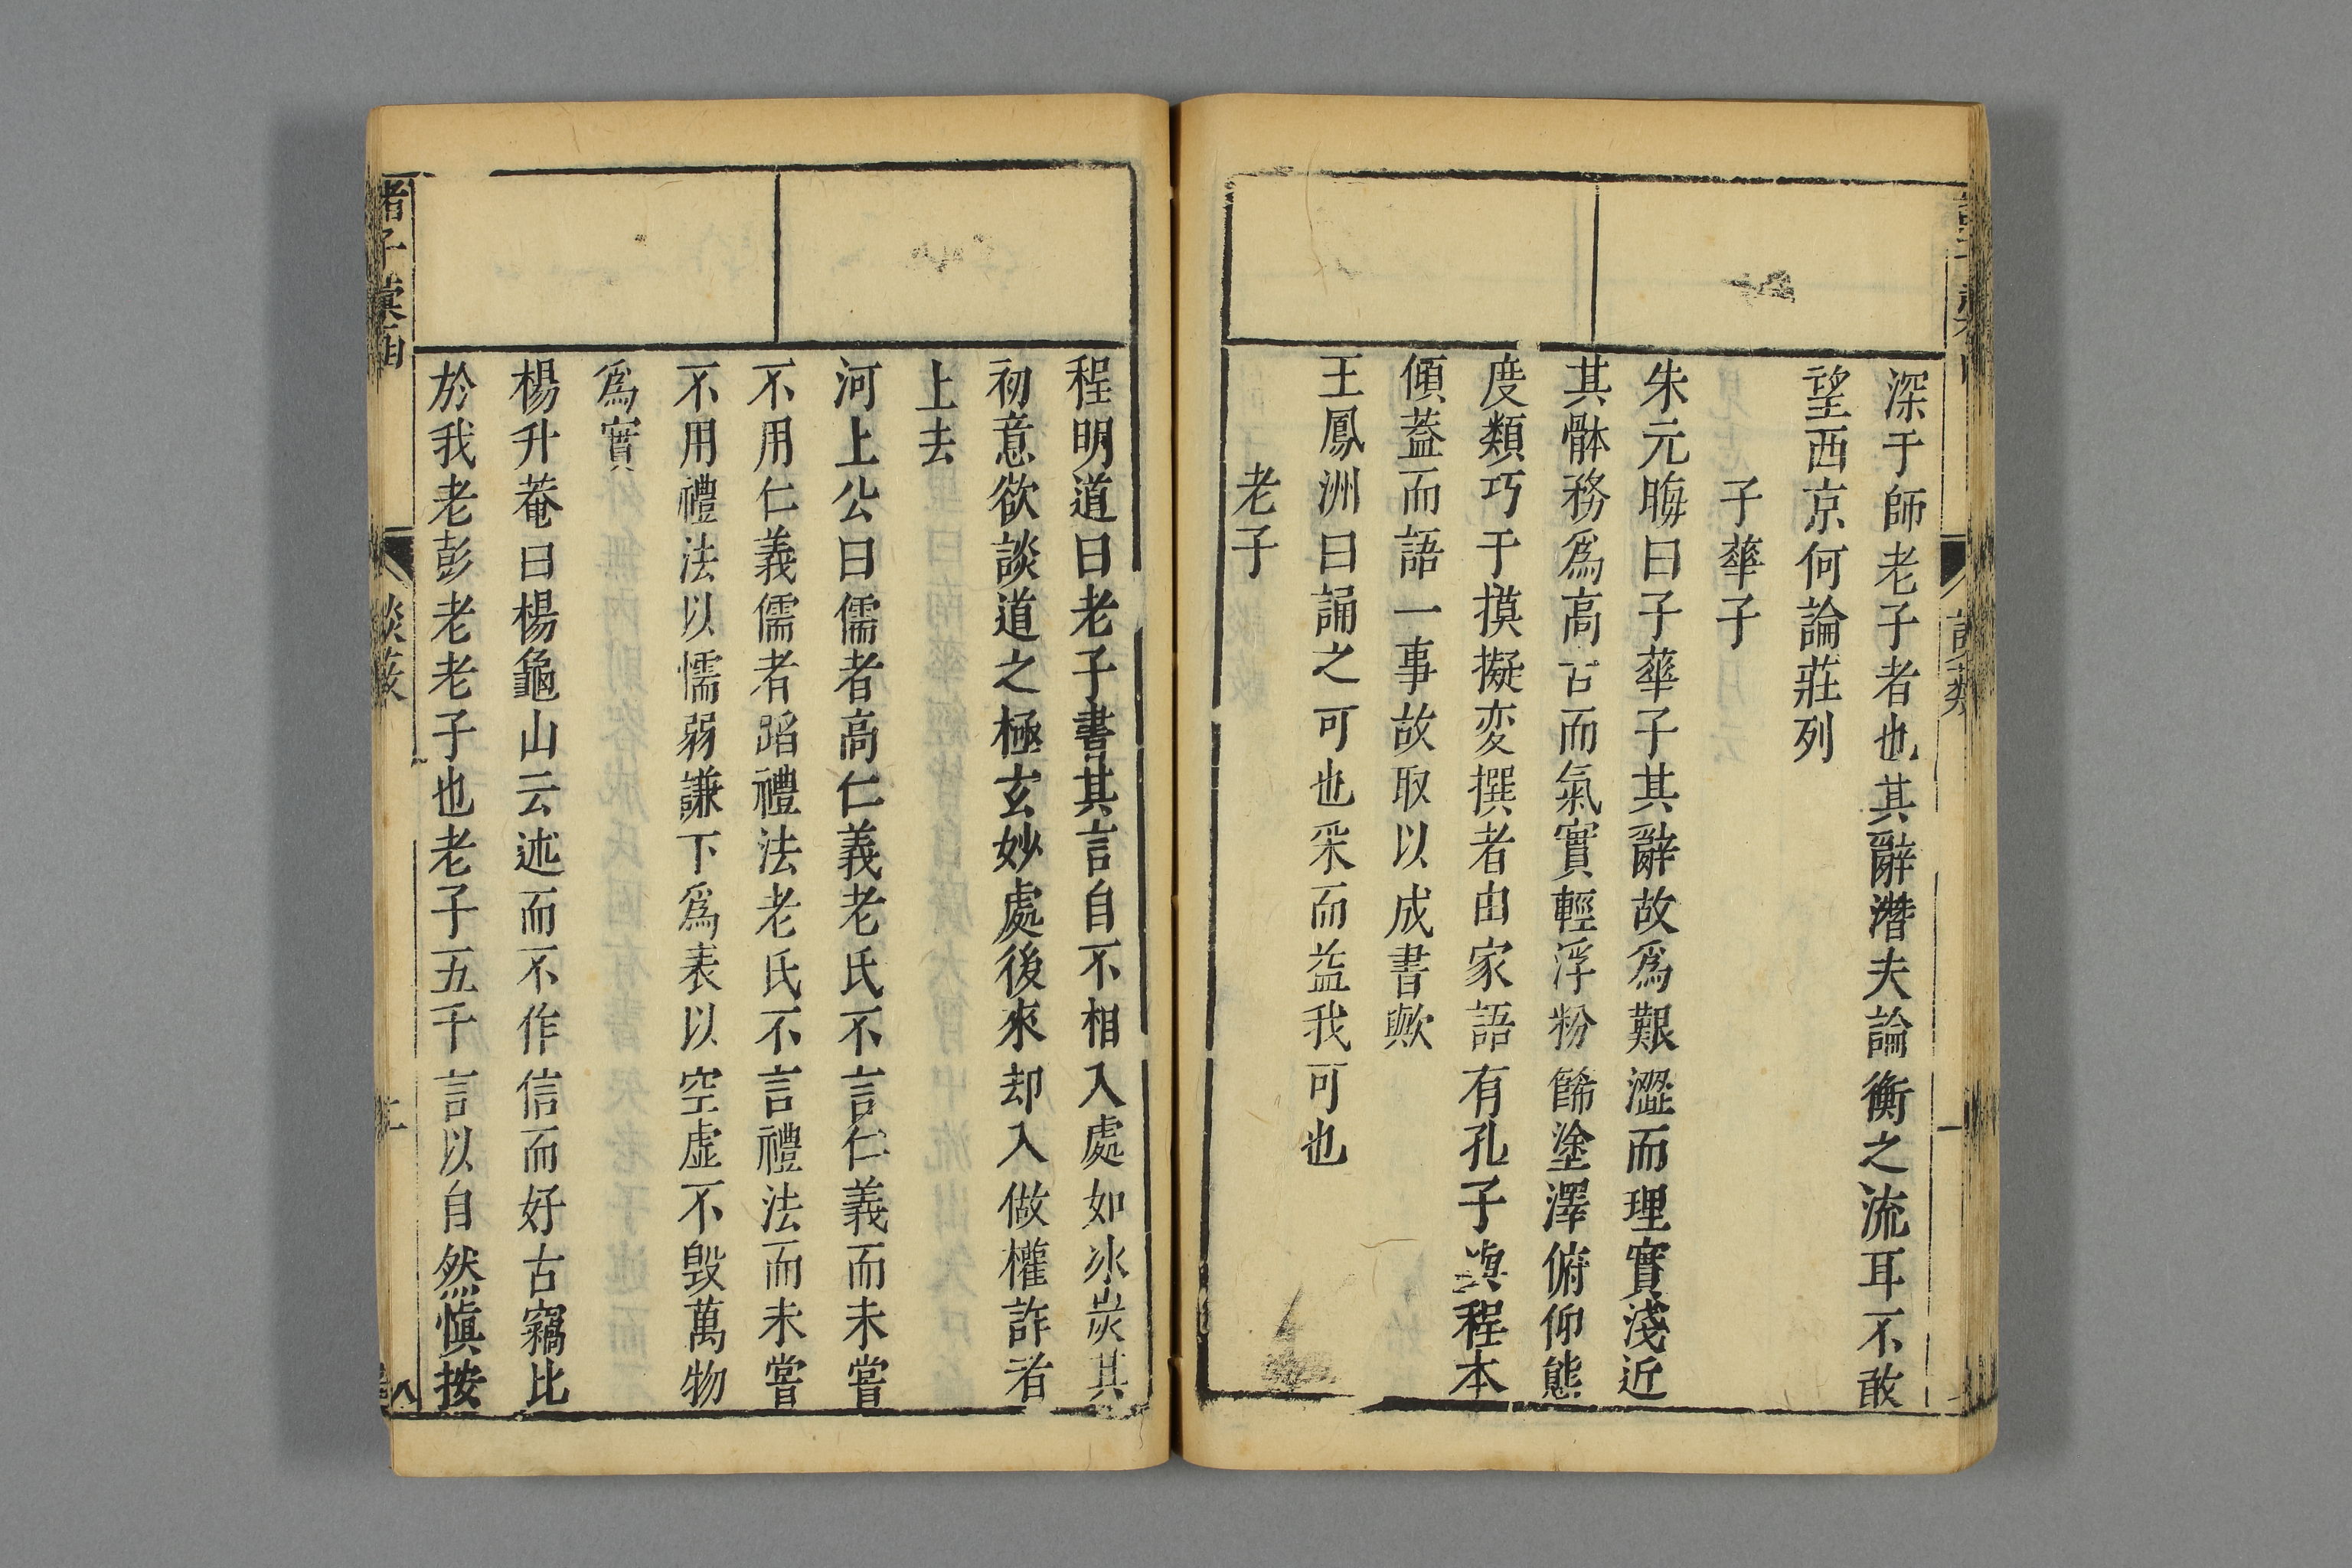 深于師老子者也其辭潛夫論衡之流耳不敢
望西京何論莊列
子華子
朱元晦曰子華子其辭故爲艱澀而理實淺近
其骵務爲高古而氣實輕浮粉餙塗澤俯仰態
度類巧于摸擬变撰者由家語有孔子遺程本
傾葢而語一事故取以成書歟
王鳳洲曰誦之可也采而益我可也
老子
程明道曰老子書其言自不相入處如氷炭其
初意欲談道之極玄妙處後來却入做權詐者
上去
河上公曰儒者高仁義老氏不言仁義而未嘗
不用仁義儒者蹈禮法老氏不言禮法而未嘗
不用禮法以懦弱謙下爲表以空虛不毀萬物
爲實
楊升菴曰楊龜山云述而不作信而好古竊比
於我老彭老老子也老子五千言以自然愼按
談藪